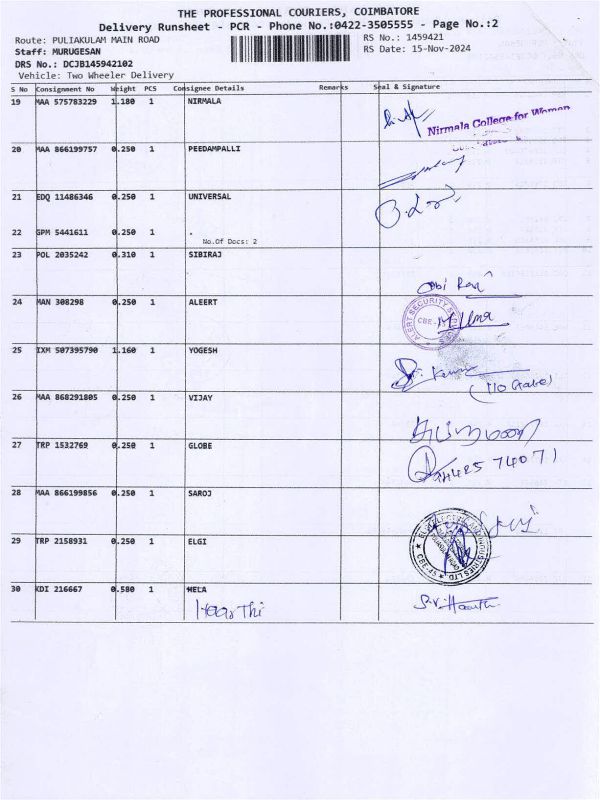 THE PROFESSIONAL COURIERS, COIMBATORE
Delivery Runsheet - PCR - Phone No.:0422-3505555 - Page No.:2
Route: PULIAKULAM MAIN ROAD RS No.: 1459421
Staff: MURUGESAN RS Date: 15-Nov-2024
DRS No.: DCJB145942102
Vehicle: Two Wheeler Delivery
S No Consignment No Weight PCS Consignee Details Remarks Seal & Signature
19 MAA 575783229 1.180 1 NIRMALA
Nirmala College for Women
20 MAA 866199757 0.250 1 PEEDAMPALLI
21 EDQ 11486346 0.250 1 UNIVERSAL
22 GPM 5441611 0.250 1 .
No.Of Docs: 2
23 POL 2035242 0.310 1 SIBIRAJ
24 MAN 308298 0.250 1 ALEERT
ALERT SECURITY SERVICES
CBE
25 IXM 507395790 1.160 1 YOGESH
26 MAA 868291805 0.250 1 VIJAY
27 TRP 1532769 0.250 1 GLOBE
74071
28 MAA 866199856 0.250 1 SAROJ
29 TRP 2158931 0.250 1 ELGI
CBE-45
30 KDI 216667 0.580 1 HELA
Haarthi